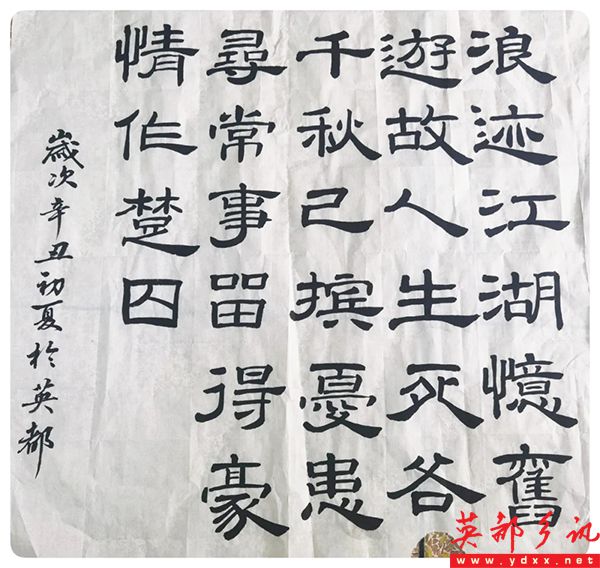 浪迹江湖憶舊
遊故人生死各
千秋已擯憂患
尋常事留得豪
情作楚囚
歲次辛丑初夏於英都
英都乡讯
www.ydxx.net